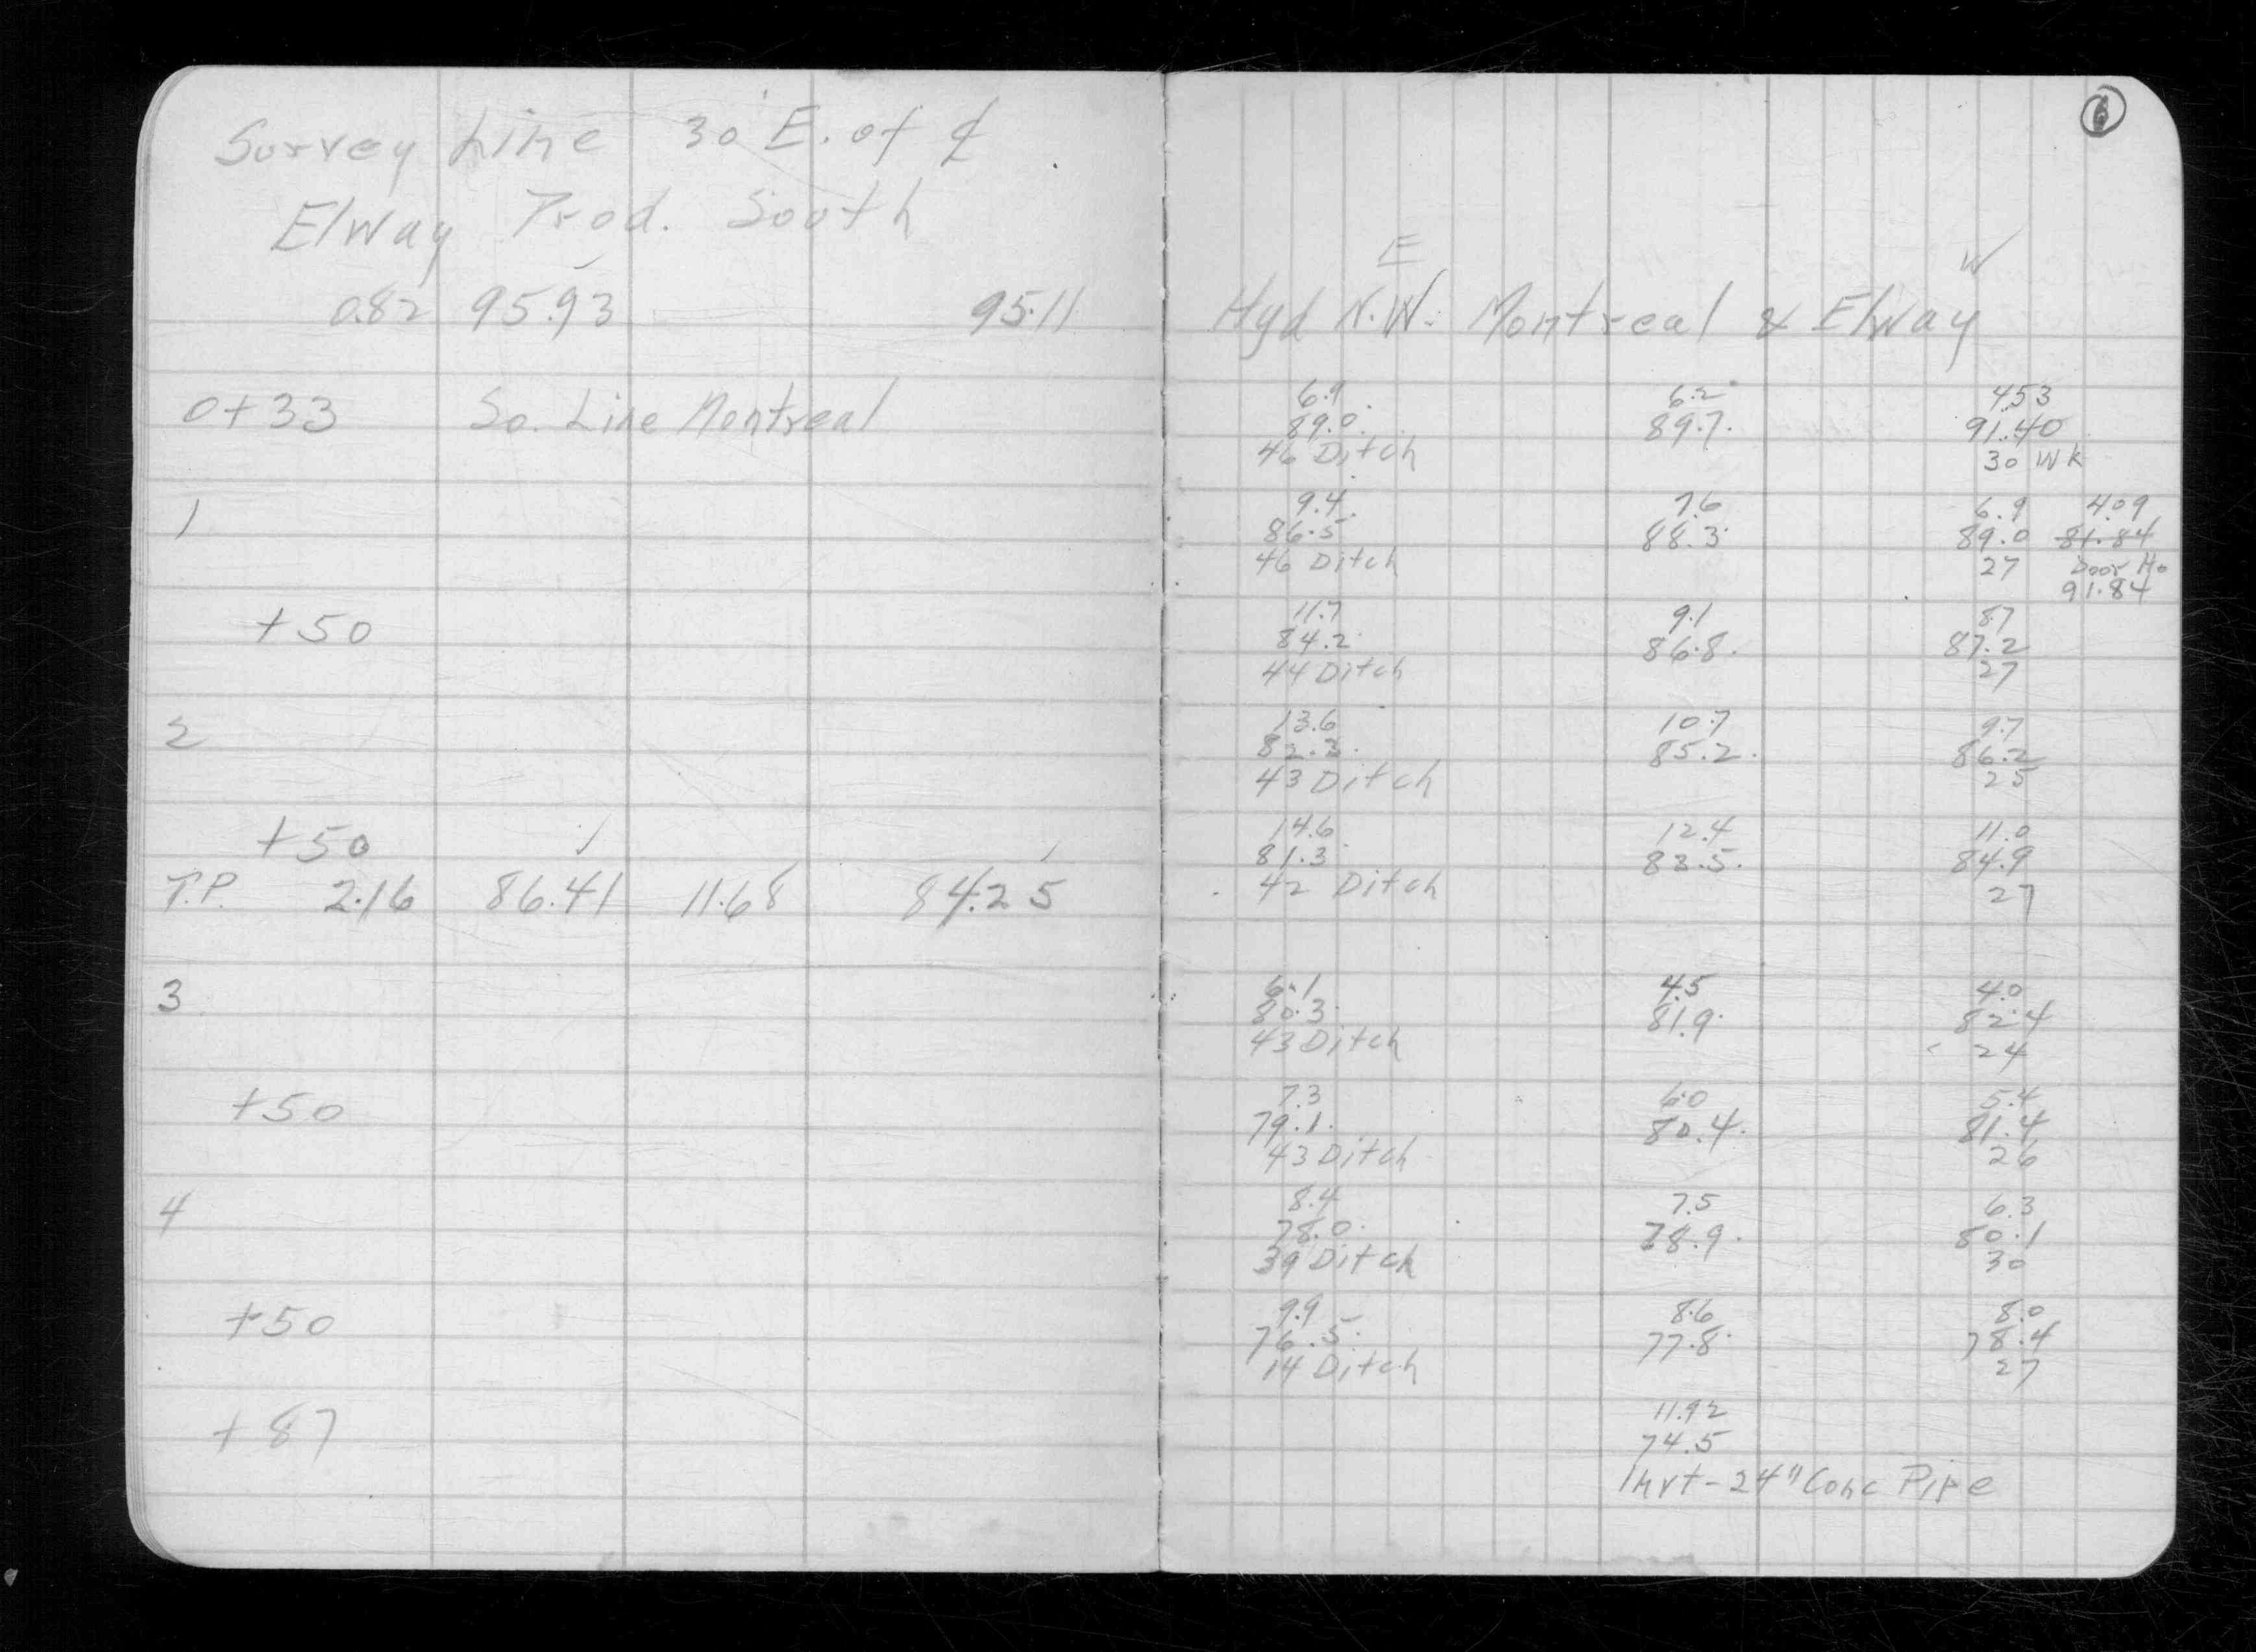 6
Survey Line 30' E. of ℄
Elway Prod. South
E W
0.82 95.93 95.11 Hyd N.W. Montreal & Elway
6.9 6.2 4.53
0+33 So. Line Montreal 89.0 89.7 91.40
46 Ditch 30 Wk
9.4 7.6 6.9 4.09
1 86.5 88.3 89.0 81.84
46 Ditch 27 Door Ho
91.84
11.7 9.1 8.7
+50 84.2 86.8 87.2
44 Ditch 27
13.6 10.7 9.7
2 82.3 85.2 86.2
43 Ditch 25
14.6 12.4 11.0
+50 81.3 83.5 84.9
T.P. 2.16 86.41 11.68 84.25 42 Ditch 27
6.1 4.5 4.0
3 80.3 81.9 82.4
43 Ditch 24
7.3 6.0 5.4
+50 79.1 80.4 81.4
43 Ditch 26
8.4 7.5 6.3
4 78.0 78.9 80.1
39 Ditch 30
9.9 8.6 8.0
+50 76.5 77.8 78.4
14 Ditch 27
11.92
+87 74.5
Invt - 24" Conc Pipe